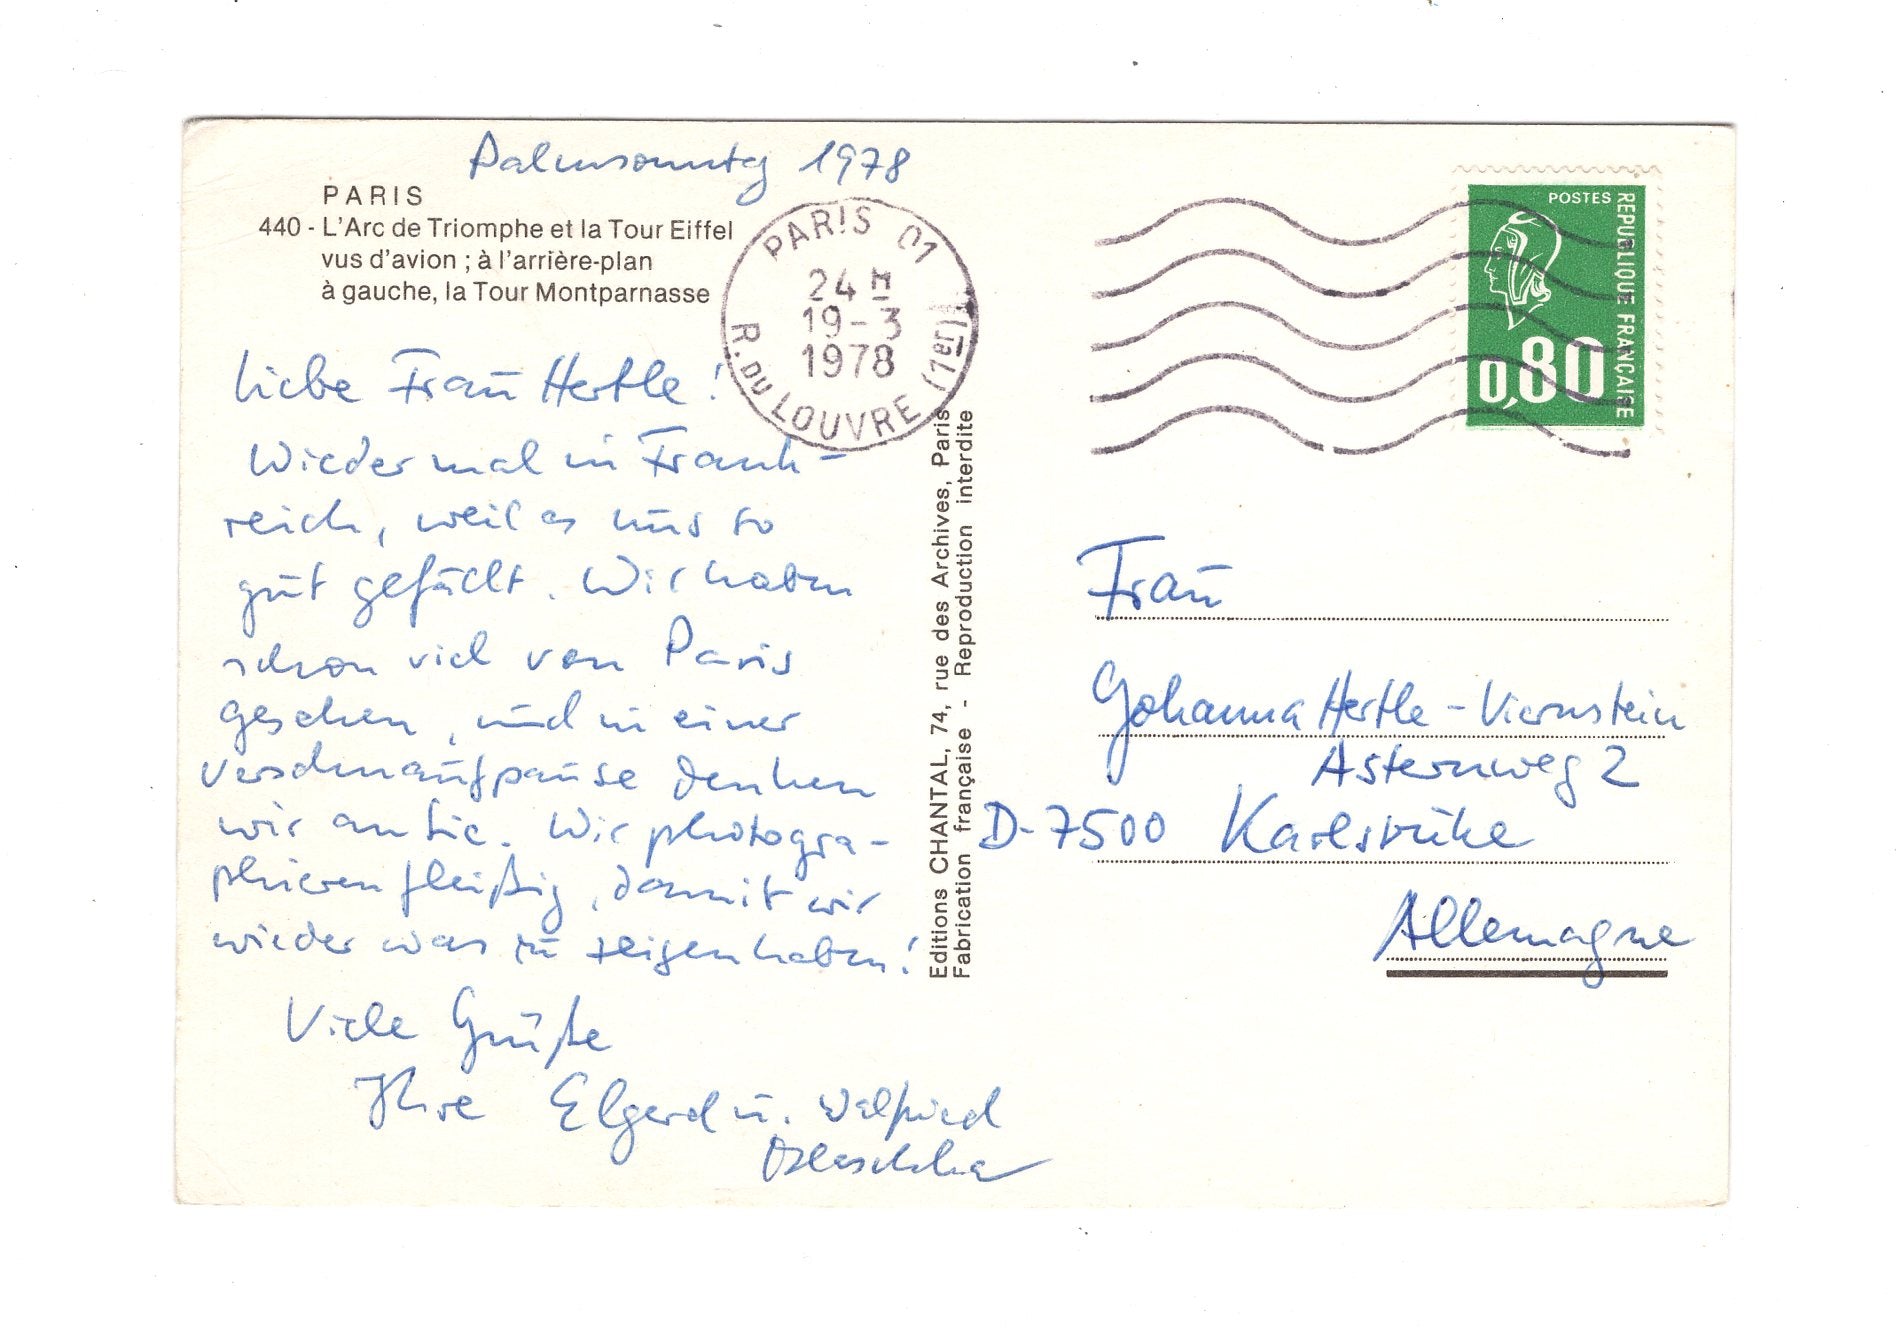 Palmsonntag 1978
PARIS
440 - L'Arc de Triomphe et la Tour Eiffel
vus d'avion ; à l'arrière-plan
à gauche, la Tour Montparnasse
PARIS 01
24 H
19-3
1978
R. DU LOUVRE (1er)
POSTES
REPUBLIQUE FRANÇAISE
0,80
Liebe Frau Hertle!
Wieder mal in Frank-
reich, weil es uns so
gut gefällt. Wir haben
schon viel von Paris
gesehen, und in einer
Verschnaufpause denken
wir an Sie. Wir photogra-
phieren fleißig, damit wir
wieder was zu zeigen haben!
Viele Grüße
Ihre Elgerd u. Walfried
Editions CHANTAL, 74, rue des Archives, Paris
Fabrication française - Reproduction interdite
Frau
Johanna Hertle-Viernstein
Asternweg 2
D-7500 Karlsruhe
Allemagne